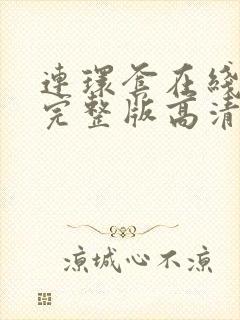 連環套在綫
完整版高清
凉城心不凉